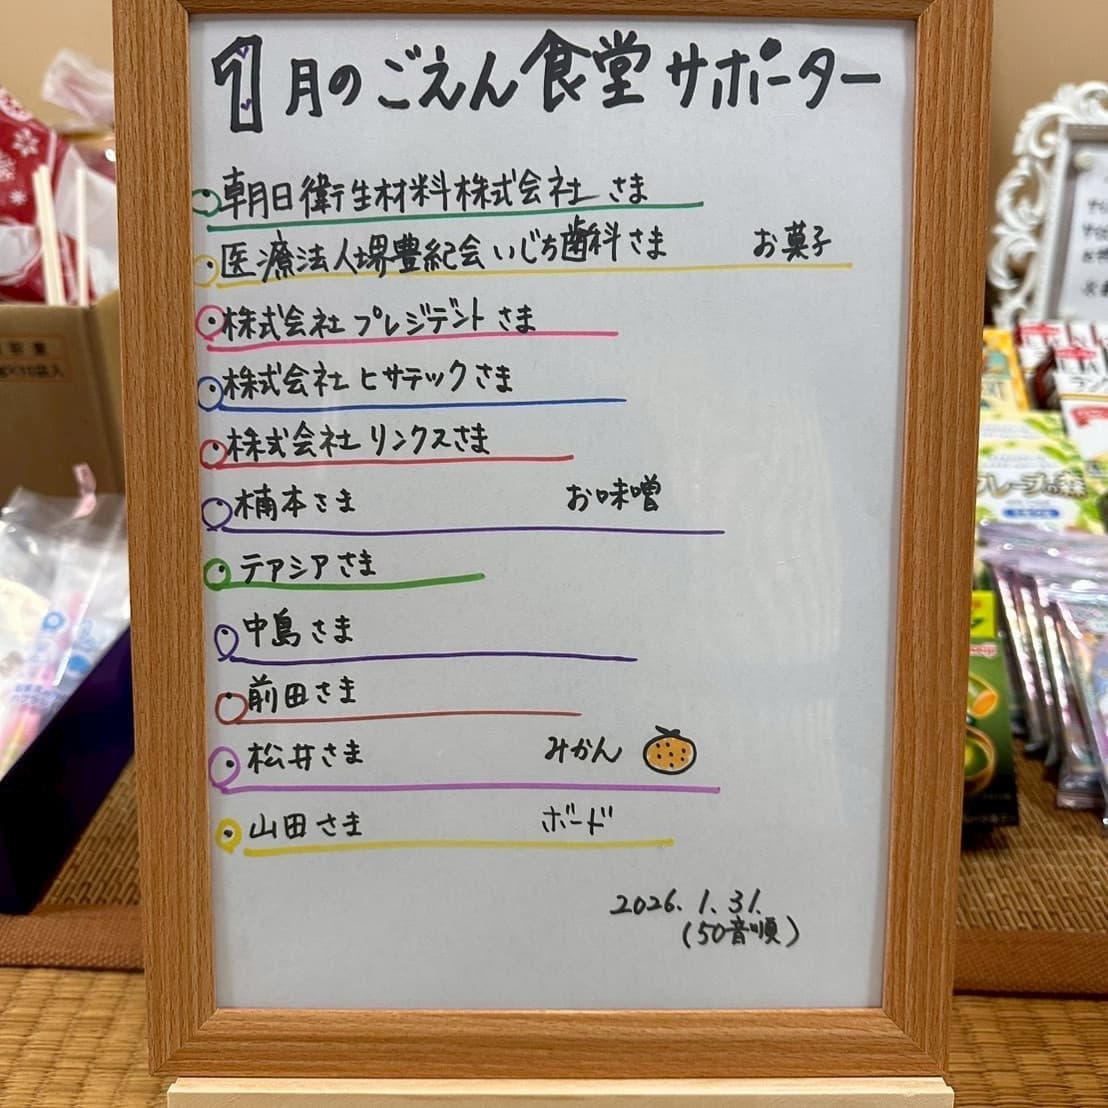 1月のごえん食堂サポーター
朝日衛生材料株式会社 さま
医療法人堺豊紀会 いじち歯科さま お菓子
株式会社 プレジデント さま
株式会社 ヒサテックさま
株式会社 リンクスさま
楠本さま お味噌
テアシアさま
中島さま
前田さま
松井さま みかん
山田さま ボード
2026.1.31.
(50音順)